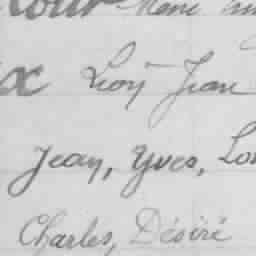 Marie
x Léon Jean
Jean, Yves, Lo
Charles, Désiré